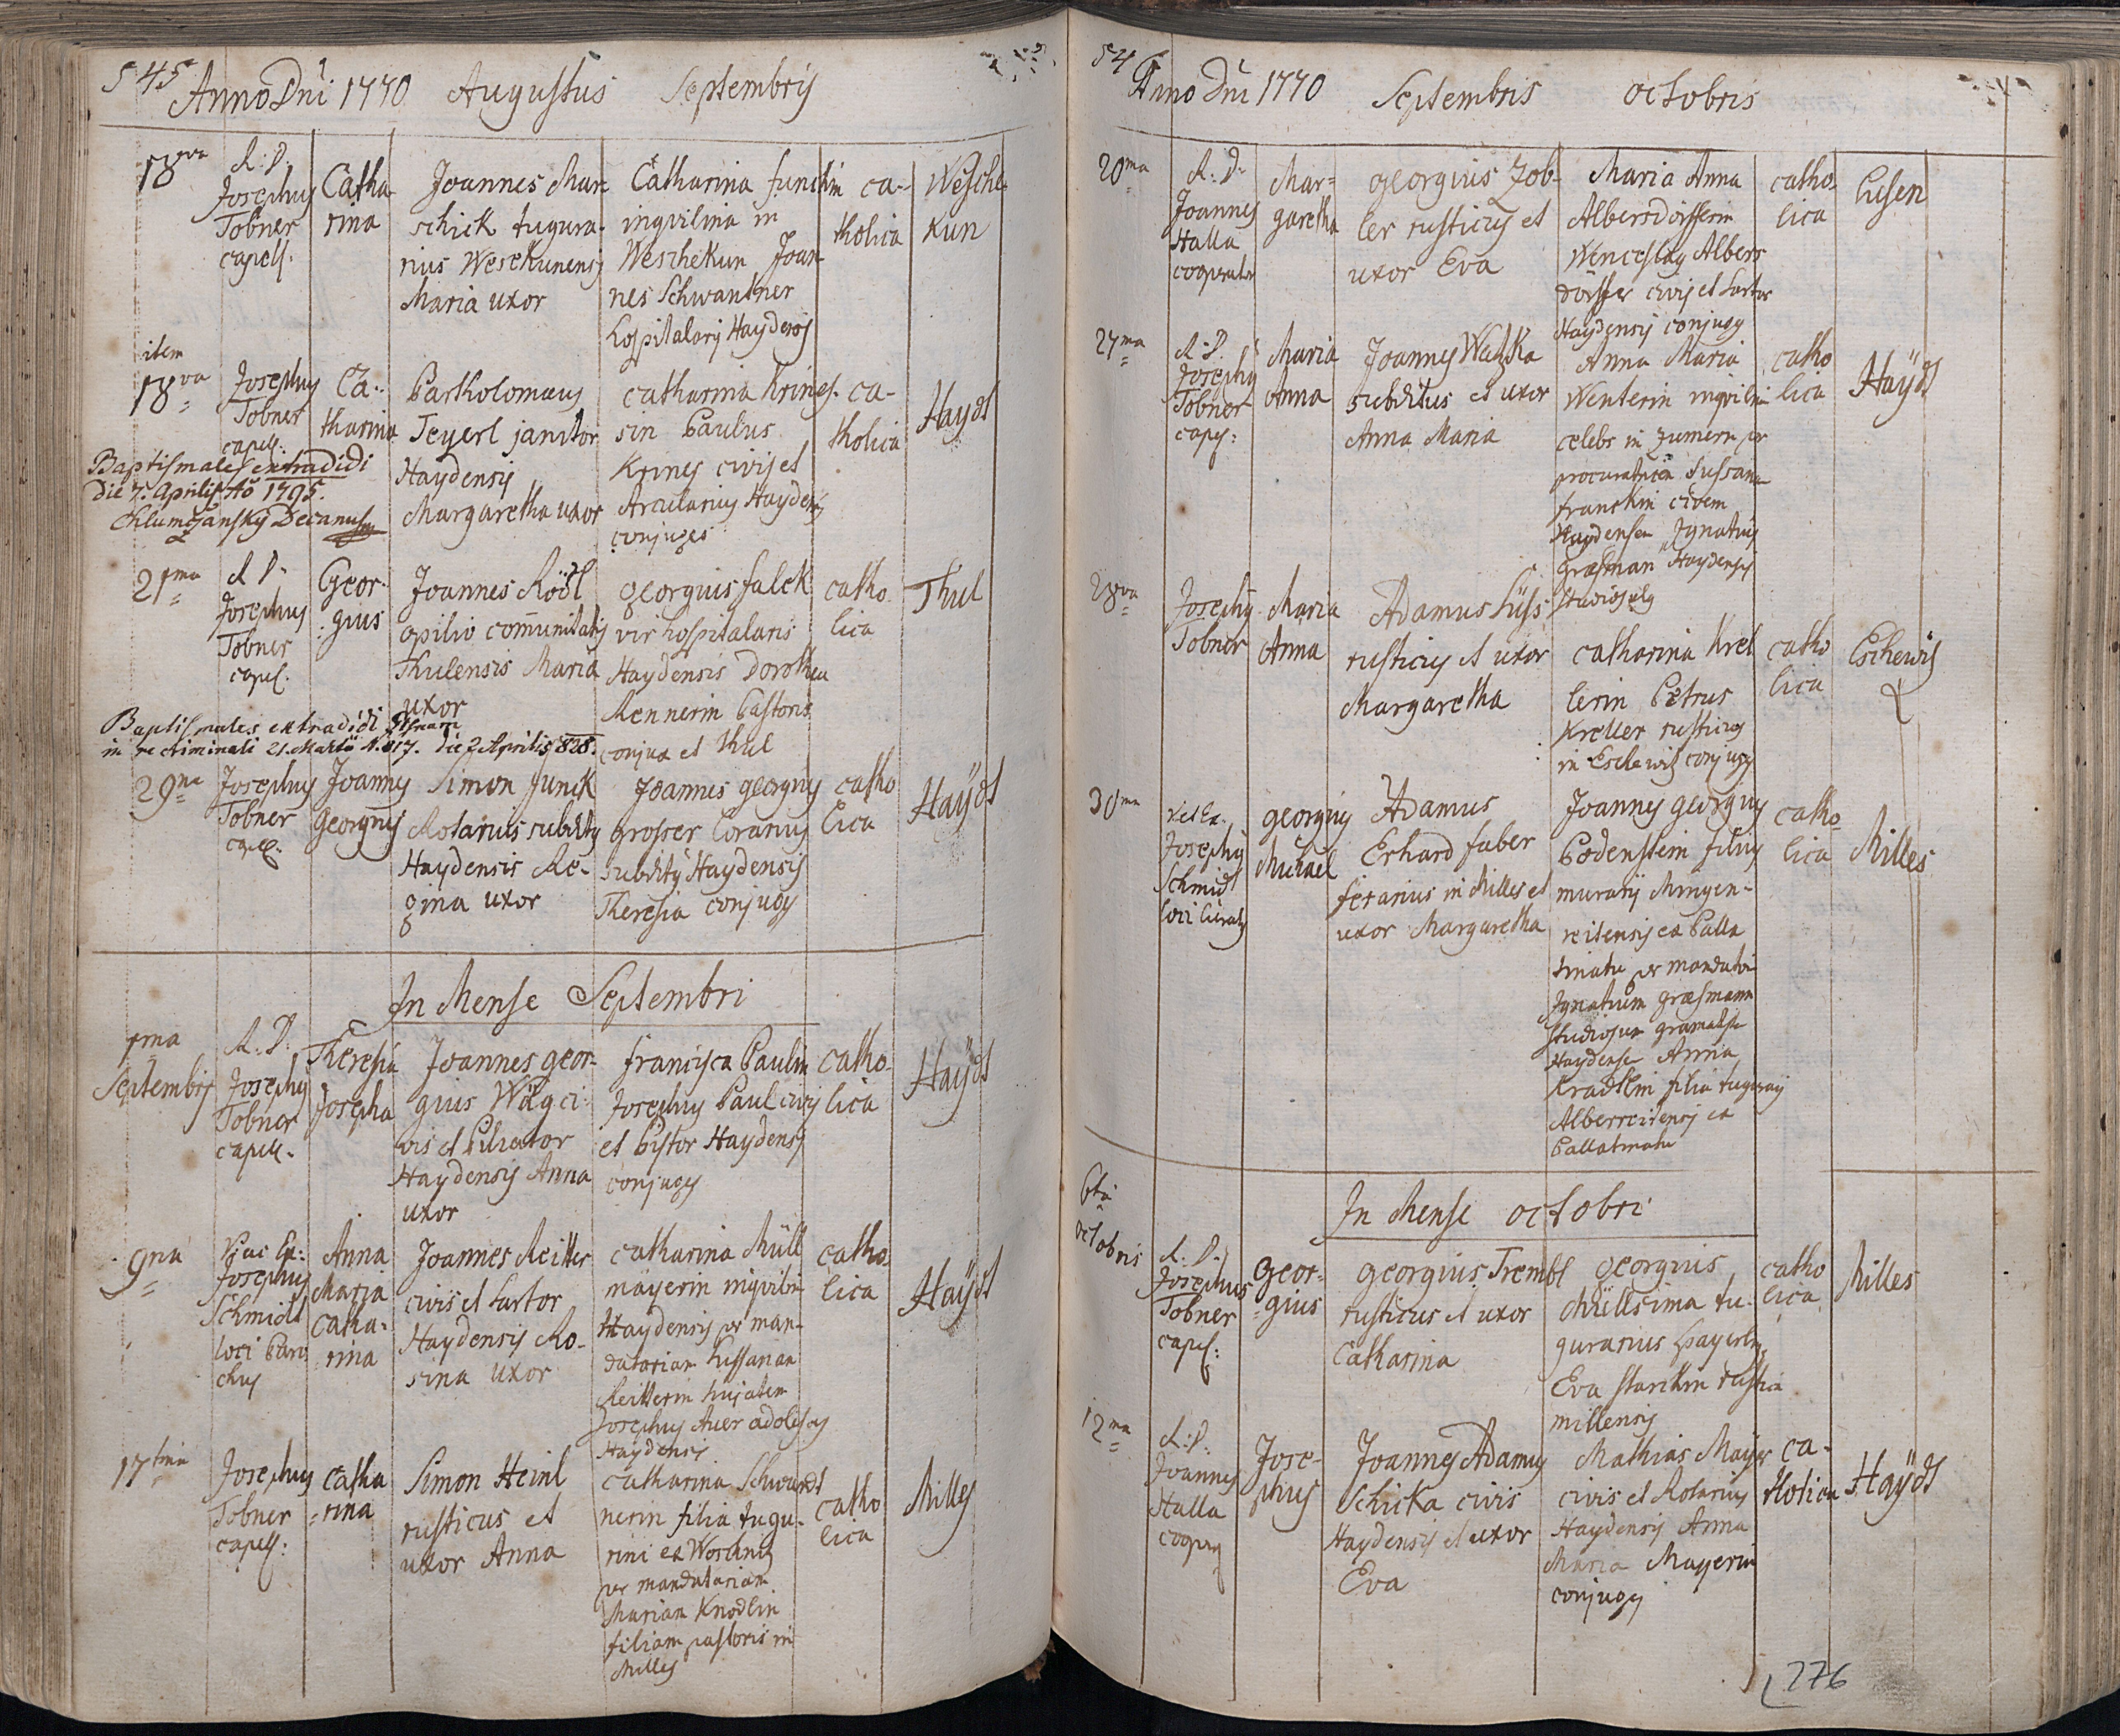 545
Anno Dni 1770 Augustus Septembris
18va
R: D:
Josephus
Tobner
capell.
Catha-
rina
Joannes Mar-
schick tugura-
rius Wesekunensis
Maria uxor
Catharina funckin
inqvilina in
Weschekun Joan-
nes Schwantner
hospitalary Haydensis
ca-
tholica
Wesche-
kun
item
18va
Josephus
Tobner
capell.
Ca-
tharina
Bartholomaeus
Teyerl janitor
Haydensis
Margaretha uxor
catharina Krines-
sin Paulus
Krines civis et
Arcularius Haydensis
conjuges
ca-
tholica
Haydt
Baptismales extradidi
Die 7. Aprilis Ao 1795.
Chlumczansky Decanus
21ma
R D.
Josephus
Tobner
capel.
Geor-
gius
Joannes Rödl
opilio comunitatis
Thulensis Maria
uxor
georgius falck
vir hospitalaris
Haydensis Dorothea
Rennerin Pastoris
conjux et Thul
catho
lica
Thul
Baptismales extradidi
in re criminali 21. Martii N. 817. die 2 Aprilis 828.
29na
Josephus
Tobner
capell.
Joannes
Georgius
Simon Junck
Rotarius subditus
Haydensis Re-
gina uxor
Joannes georgius
grosser Coranius
subditus Haydensis
Theresia conjuges
catho
lica
Haÿdt
In Mense Septembri
1ma
Septembris
R: D:
Josephus
Tobner
capell.
Theresia
Josepha
Joannes geor-
gius Wäg ci-
vis et Pileator
Haydensis Anna
uxor
francisca Paulin
Josephus Paul civis
et Pistor Haydensis
conjuges
catho-
lica
Haÿdt
9na
Josephus
Schmidt
loci Paro
chus
Anna
Maria
Catha-
rina
Joannes Reitter
civis et Sartor
Haydensis Ro-
sina uxor
catharina Müll
mäyerin inqvilina
Haydensis per man-
datariam Sussanam
Reitterin hujatem
Josephus Auer adolescens
Haydensis
catho-
lica
Haÿdt
17tma
Josephus
Tobner
capell:
catha
rina
Simon Heinl
rusticus et
uxor Anna
catharina Schwandt
nerin filia tugu-
rini ex
per mandatariam
Mariam Knodlin
filiam pastoris in
Milles
catho
lica
Milles
54
Anno Dni 1770 Septembris octobris
20ma
R: D:
Joannes
Halla
cooperator
Mar-
garetha
georgius Zob-
ler rusticus et
uxor Eva
Maria Anna
Albersdörfferin
Wenceslaus Albers
dörffer civis et Sartor
Haydensis conjuges
catho-
lica
Eisen
27ma
R: D.
Josephus
Tobner
capel:
Maria
Anna
Joannes Watzka
subditus et uxor
Anna Maria
Anna Maria
Wenterin inqvilina
celebs in Zumern per
procuratricem Sussanam
franckin civem
Haydensem Ignatius
Grasman Haydensis
studiosus
catho
lica
Haÿdt
28va
Josephus
Tobner
Maria
Anna
Adamus Süss
rusticus et uxor
Margaretha
catharina Krel
lerin Petrus
Kreller rusticus
in Eschewitz conjuges
catho
lica
Eschewitz
30ma
Josephus
Schmidt
loci Curatus
georgius
Michael
Adamus
Erhard faber
ferarius in Milles et
uxor Margaretha
Joannes georgius
Bodenstein filius
murarii Mingen-
reitensis ex Palla
tinatu per mandatarium
Ignatium grasmann
studiosum gramatista
Haydensem Anna
Kradlin filia tugurarii
Alberreitensis ex
Pallatinatu
catho-
lica
Milles
In Mense octobri
6ta
octobris
R: D.
Josephus
Tobner
capel:
Geor-
gius
georgius Trembl
rusticus et uxor
Catharina
georgius
Müllsima tu-
gurarius
Eva Starckin rustica
millensis
catho
lica
Milles
12ma
R: D:
Joannes
Halla
Jose-
phus
Joannes Adamus
Schicka civis
Haydensis et uxor
Eva
Mathias Mayer
civis et Rotarius
Haydensis Anna
Maria Mayerin
conjuges
ca-
tholica
Haÿdt
276